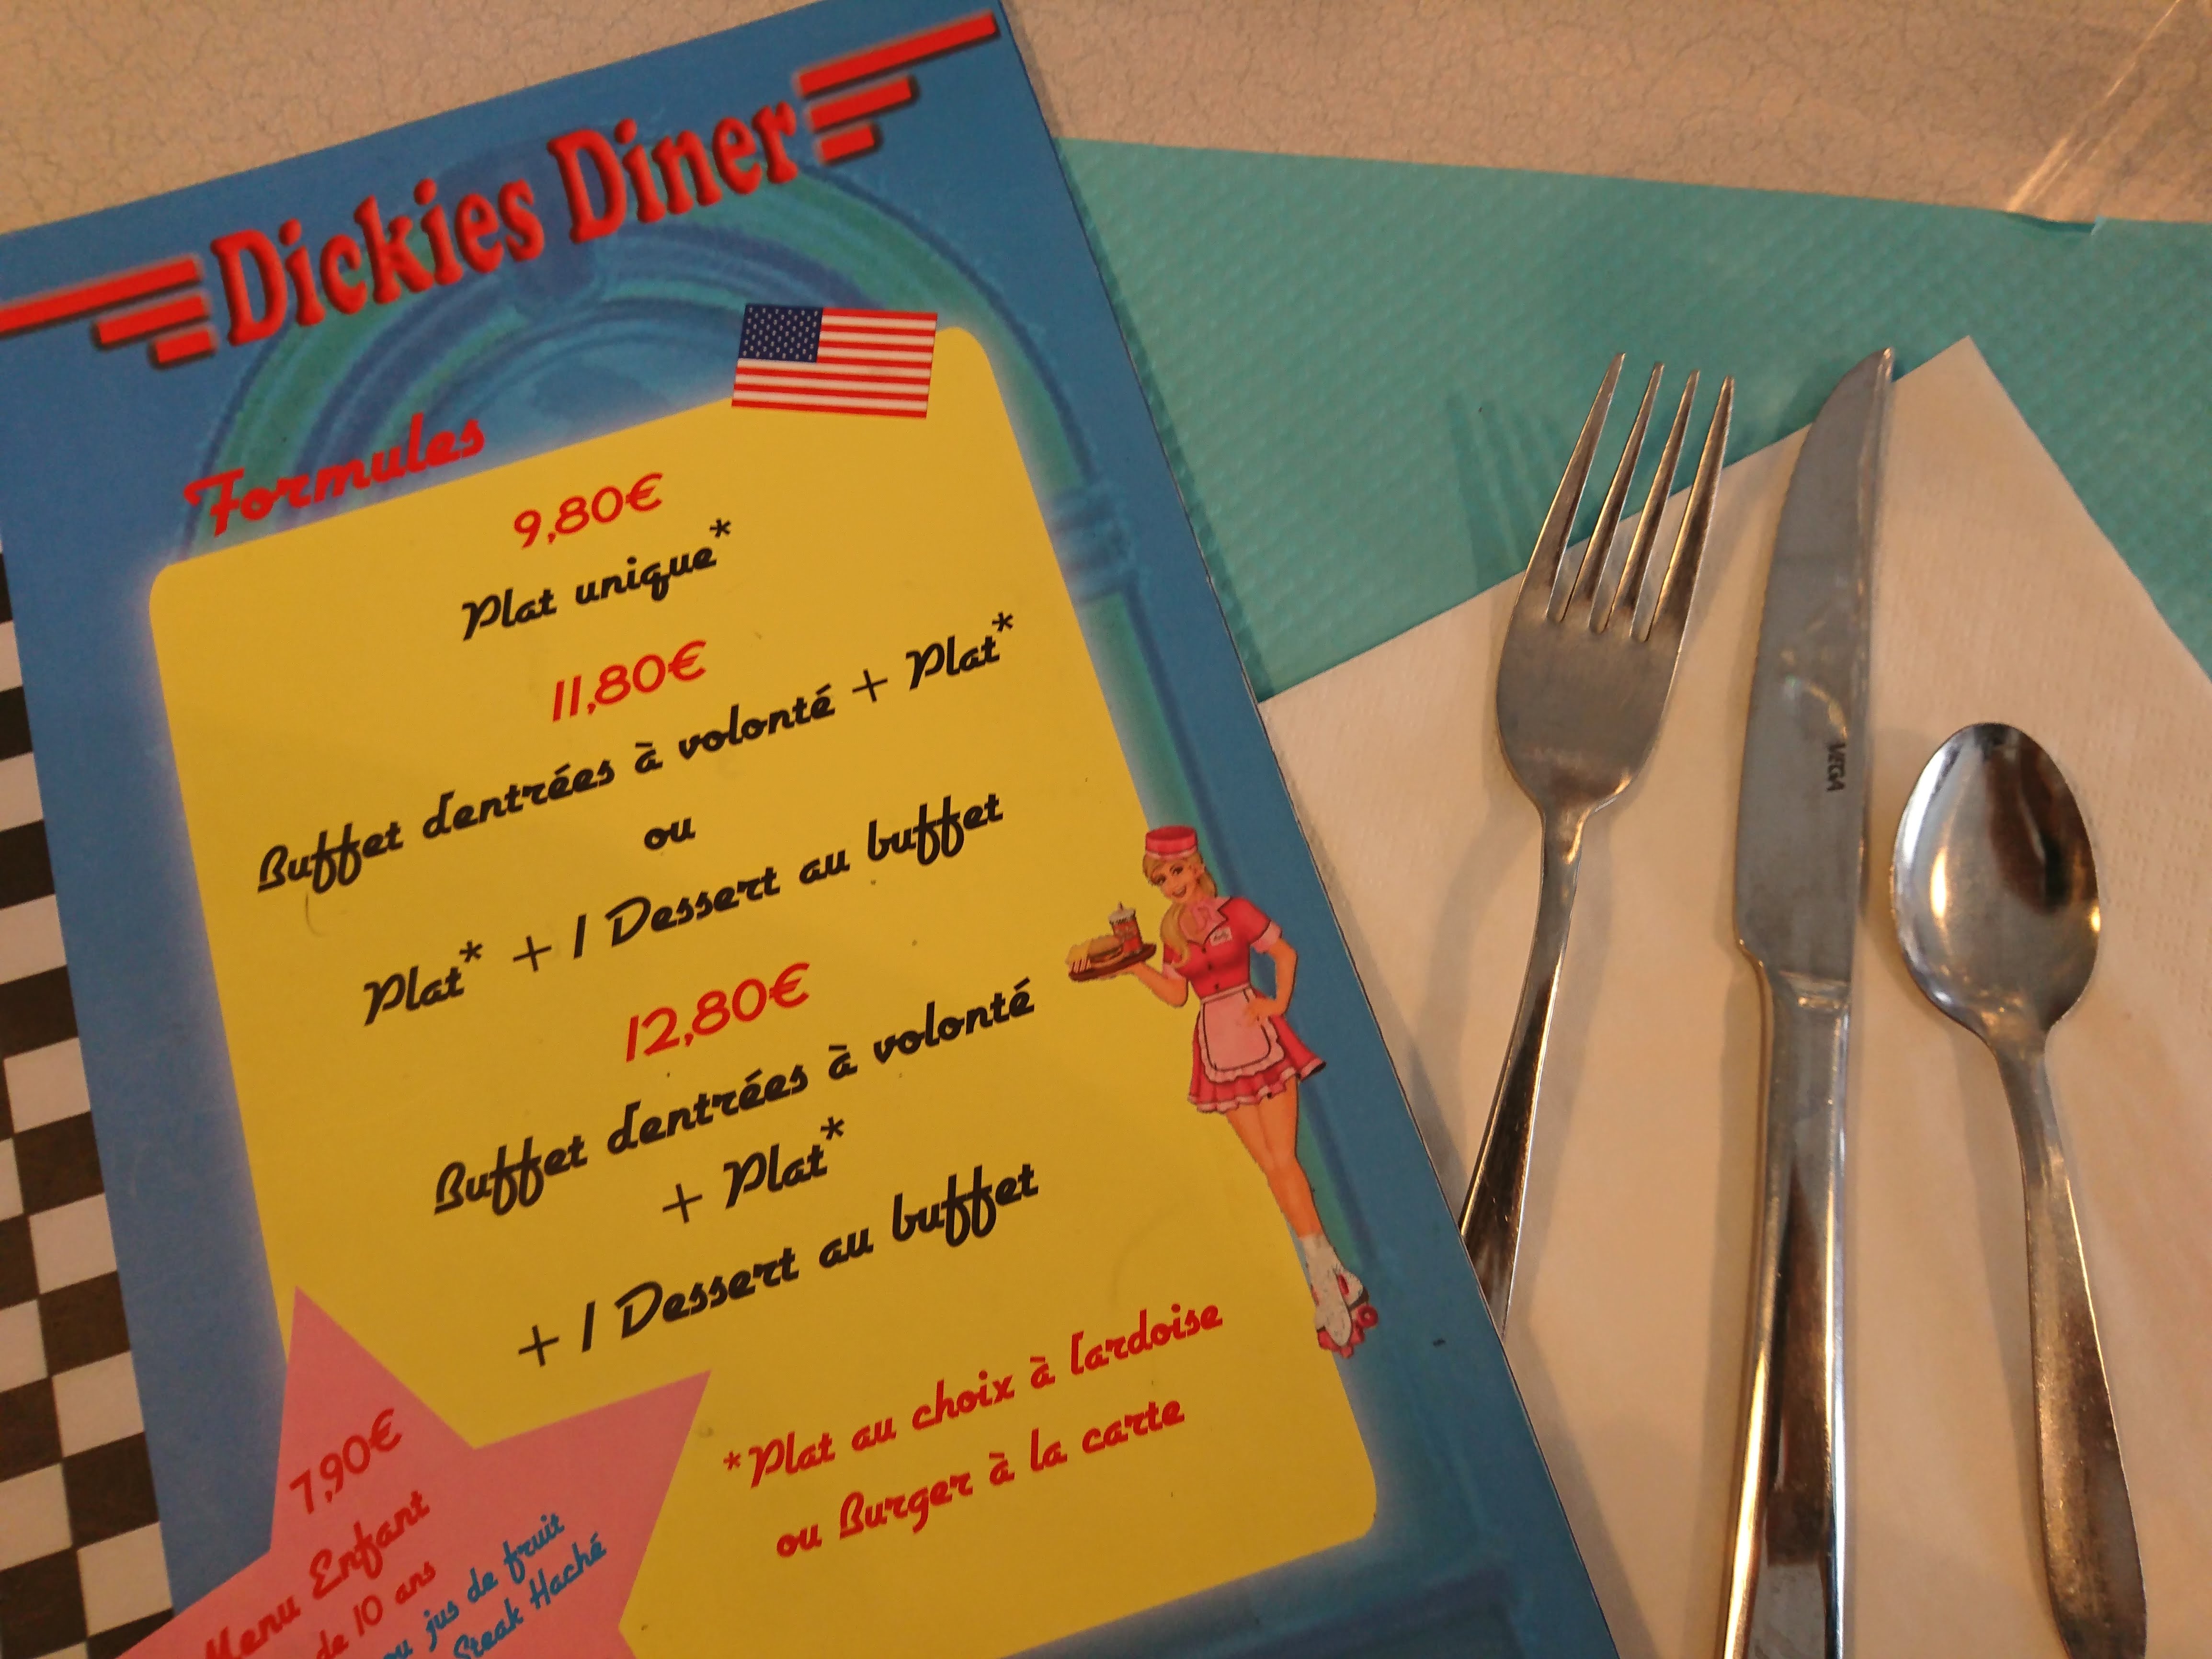 Dickies Diner
Formules
9,80€
Plat unique*
11,80€
Buffet dentrées à volonté + Plat*
ou
Plat* + 1 Dessert au buffet
12,80€
Buffet dentrées à volonté
+ Plat*
+ 1 Dessert au buffet
*Plat au choix à lardoise
ou Burger à la carte
7,90€
Menu Enfant
de 10 ans
ou jus de fruit
Steak Haché
VEGA